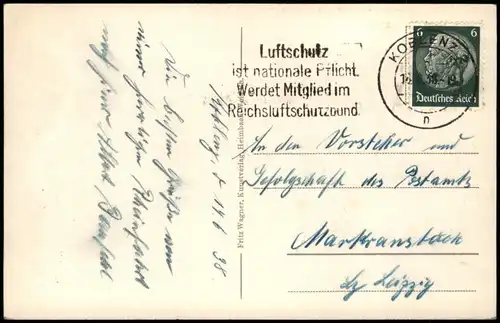 Luftschutz
ist nationale Pflicht.
Werdet Mitglied im
Reichsluftschutzbund
KOBLENZ
n
6 6
Deutsches Reich
Koblenz, d 14.6.38.
Die besten Grüße von
einer herrlichen Rheinfahrt
Fritz Wagner, Kunstverlag, Heimbach
An den Vorsteher und
Gefolgschaft des Postamts
Markranstädt
Leipzig